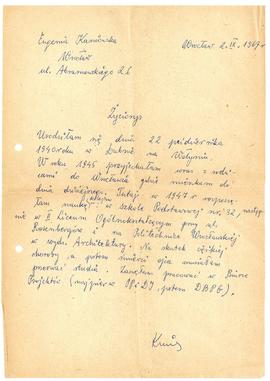 Eugenia Kamińska
Wrocław
ul. Abramowskiego 26
Wrocław 2.IX.1969 r.
Życiorys
Urodziłam się dnia 22 października
1940 roku w Dubnie na Wołyniu.
W roku 1945 przyjechałam wraz z rodzi-
cami do Wrocławia gdzie mieszkam do
dnia dzisiejszego. Tutaj w 1947 r rozpoczę-
łam naukę w szkole Podstawowej nr 32, następ-
nie w II Liceum Ogólnokształcącym przy ul.
Rosenbergów i na Politechnice Wrocławskiej
w wydz. Architektury. Na skutek ciężkiej
choroby a potem śmierci ojca musiałam
przerwać studia. Zaczęłam pracować w Biurze
Projektów (najpierw potem DBPG).